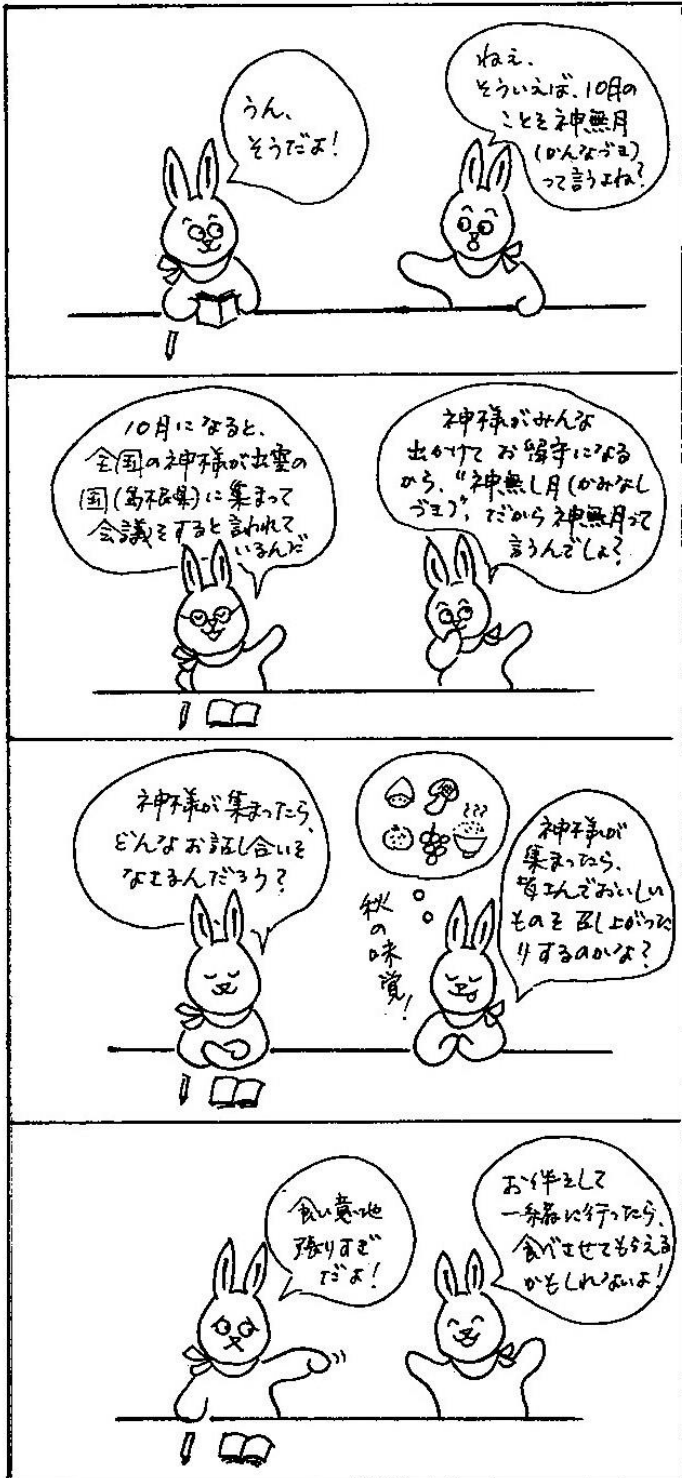 ねえ、
そういえば、10月の
ことを神無月
(かんなづき)
って言うよね?
うん、
そうだよ!
神様がみんな
出かけてお留守になる
から、“神無し月(かみなし
づき)”、だから神無月って
言うんでしょ?
10月になると、
全国の神様が出雲の
国(島根県)に集まって
会議をすると言われて
いるんだ
神様が
集まったら、
皆さんでおいしい
ものを召し上がった
りするのかな?
秋の味覚!
神様が集まったら、
どんなお話し合いを
なさるんだろう?
お伴をして
一緒に行ったら、
食べさせてもらえる
かもしれないよ!
食い意地
張りすぎ
だよ!